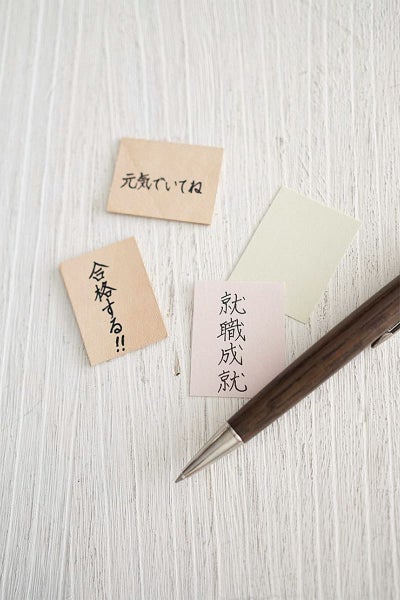 元気でいてね
合格する!!
就職成就